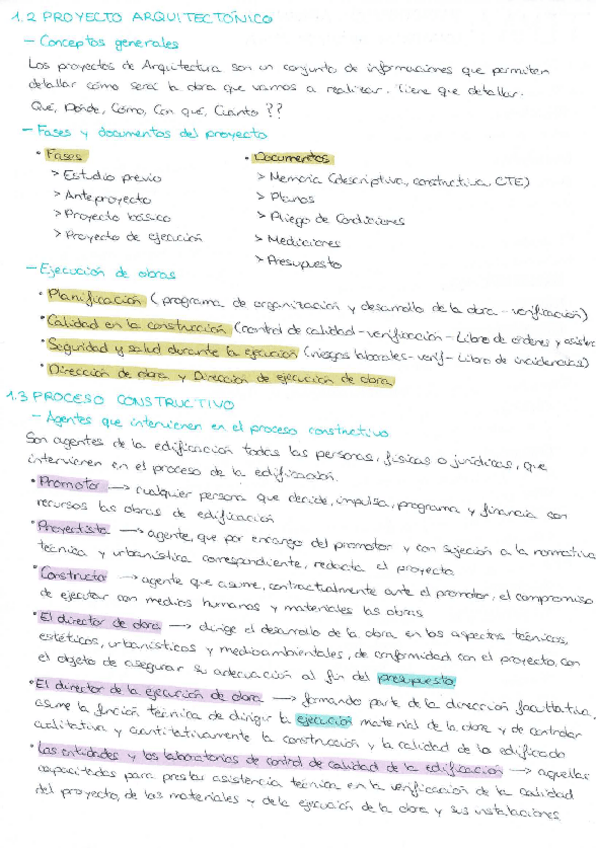 1.2 PROYECTO ARQUITECTÓNICO
- Conceptos generales
Los proyectos de Arquitectura son un conjunto de informaciones que permiten
detallar cómo será la obra que vamos a realizar. Tiene que detallar.
Qué, Dónde, Cómo, Con qué, Cuánto ??
- Fases y documentos del proyecto
• Fases
> Estudio previo
> Anteproyecto
> Proyecto básico
> Proyecto de ejecución
• Documentos
> Memoria (descriptiva, constructiva, CTE)
> Planos
> Pliego de Condiciones
> Mediciones
> Presupuesto
- Ejecución de obras
• Planificación (programa de organización y desarrollo de la obra - verificación)
• Calidad en la construcción (control de calidad - verificación - Libro de órdenes y asistenc
• Seguridad y salud durante la ejecución (riesgos laborales - verif - Libro de incidencias)
• Dirección de obra y Dirección de ejecución de obra
1.3 PROCESO CONSTRUCTIVO
- Agentes que intervienen en el proceso constructivo
Son agentes de la edificación todas las personas, físicas o jurídicas, que
intervienen en el proceso de la edificación.
• Promotor → cualquier persona que decide, impulsa, programa y financia con
recursos las obras de edificación
• Proyectista → agente, que por encargo del promotor y con sujeción a la normativa
técnica y urbanística correspondiente, redacta el proyecto
• Constructor → agente que asume, contractualmente ante el promotor, el compromiso
de ejecutar con medios humanos y materiales las obras
• El director de obra → dirige el desarrollo de la obra en los aspectos técnicos,
estéticos, urbanísticos y medioambientales, de conformidad con el proyecto, con
el objeto de asegurar su adecuación al fin del presupuesto
• El director de la ejecución de obra → formando parte de la dirección facultativa,
asume la función técnica de dirigir la ejecución material de la obra y de controlar
cualitativa y cuantitativamente la construcción y la calidad de lo edificado
• Las entidades y los laboratorios de control de calidad de la edificación → aquellas
capacitadas para prestar asistencia técnica en la verificación de la calidad
del proyecto, de los materiales y de la ejecución de la obra y sus instalaciones